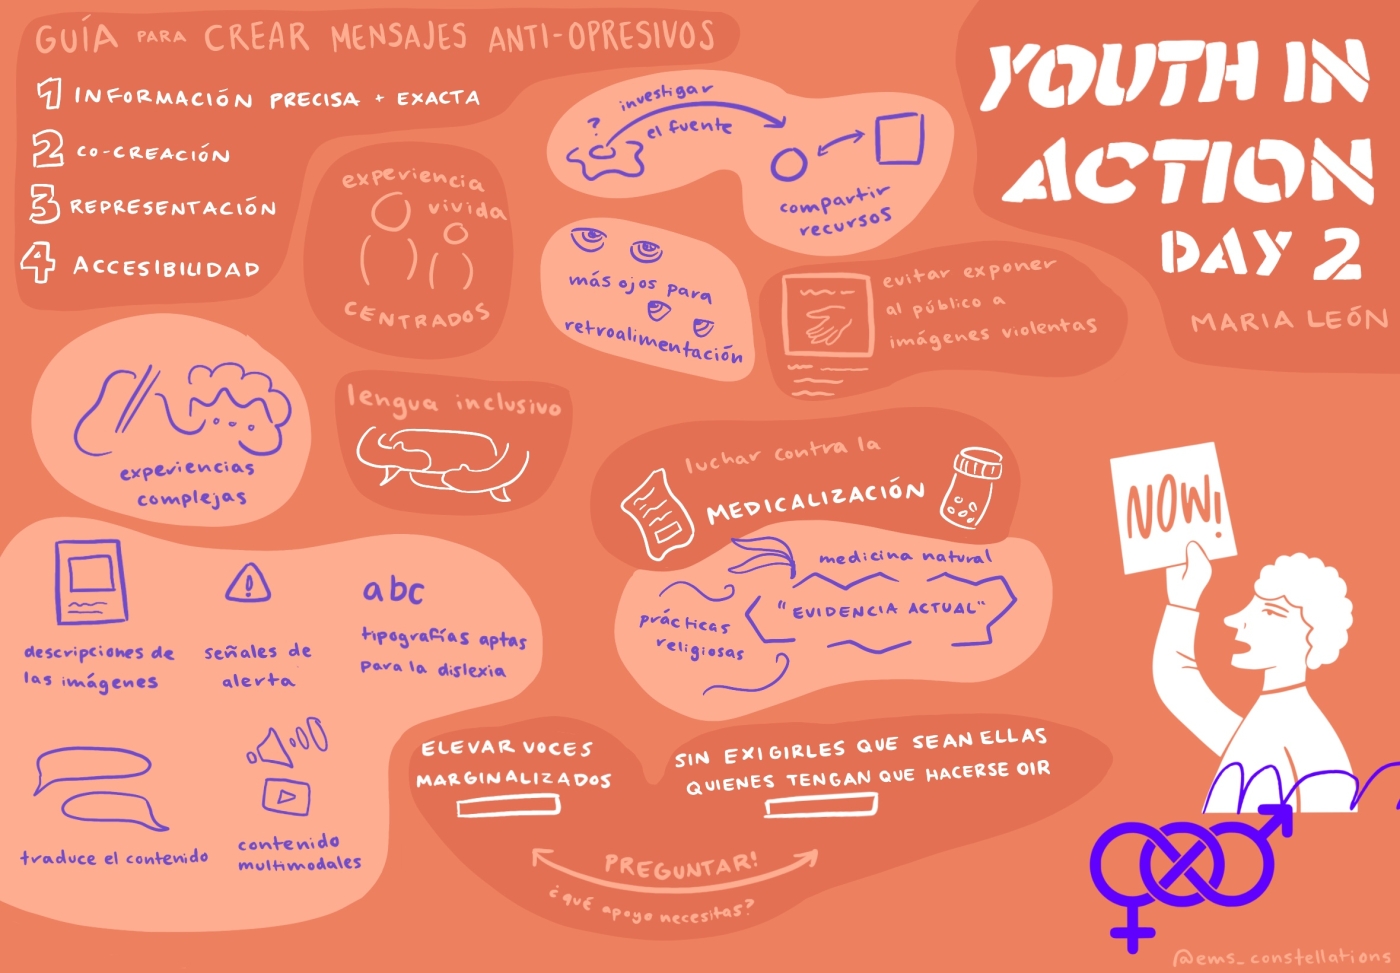 GUÍA PARA CREAR MENSAJES ANTI-OPRESIVOS
1 INFORMACIÓN PRECISA + EXACTA
2 CO-CREACIÓN
3 REPRESENTACIÓN
4 ACCESIBILIDAD
YOUTH IN
ACTION
DAY 2
MARIA LEÓN
experiencia
vivida
CENTRADOS
?
investigar
el fuente
compartir
recursos
más ojos para
retroalimentación
evitar exponer
al público a
imágenes violentas
experiencias
complejas
lengua inclusivo
luchar contra la
MEDICALIZACIÓN
medicina natural
"EVIDENCIA ACTUAL"
prácticas
religiosas
NOW!
descripciones de
las imágenes
señales de
alerta
abc
tipografías aptas
para la dislexia
traduce el contenido
contenido
multimodales
ELEVAR VOCES
MARGINALIZADOS
SIN EXIGIRLES QUE SEAN ELLAS
QUIENES TENGAN QUE HACERSE OIR
PREGUNTAR!
¿qué apoyo necesitas?
@ems_constellations